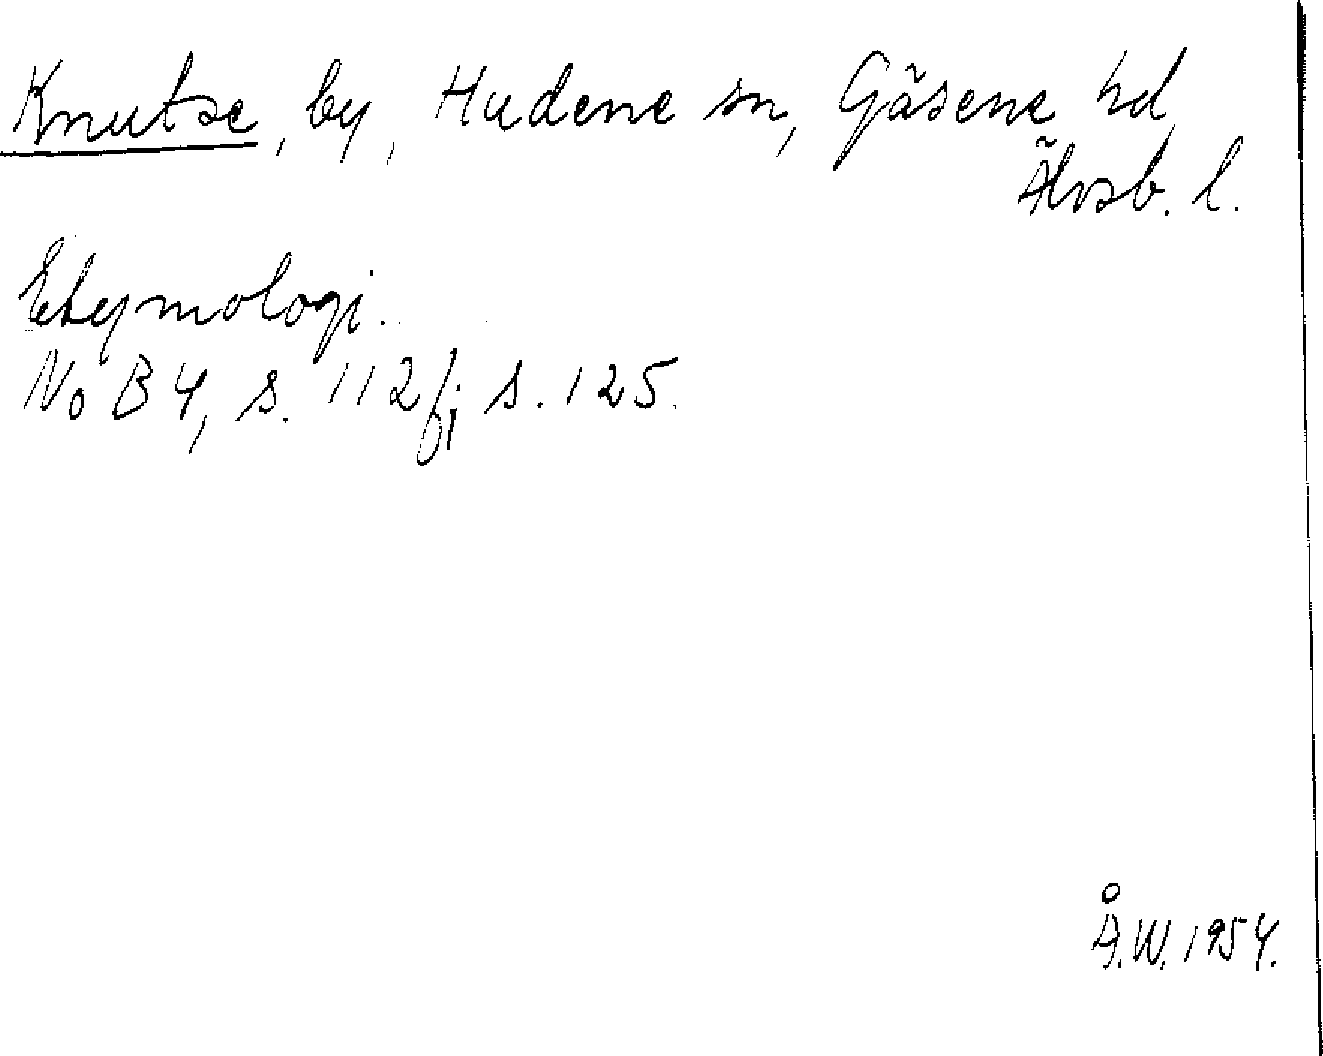 Knutse, by, Hudene sn, Gäsene hd,
Älvsb. l.
Etymologi.
NoB 4, s. 112 f; s. 125.
Å.W. 1954.